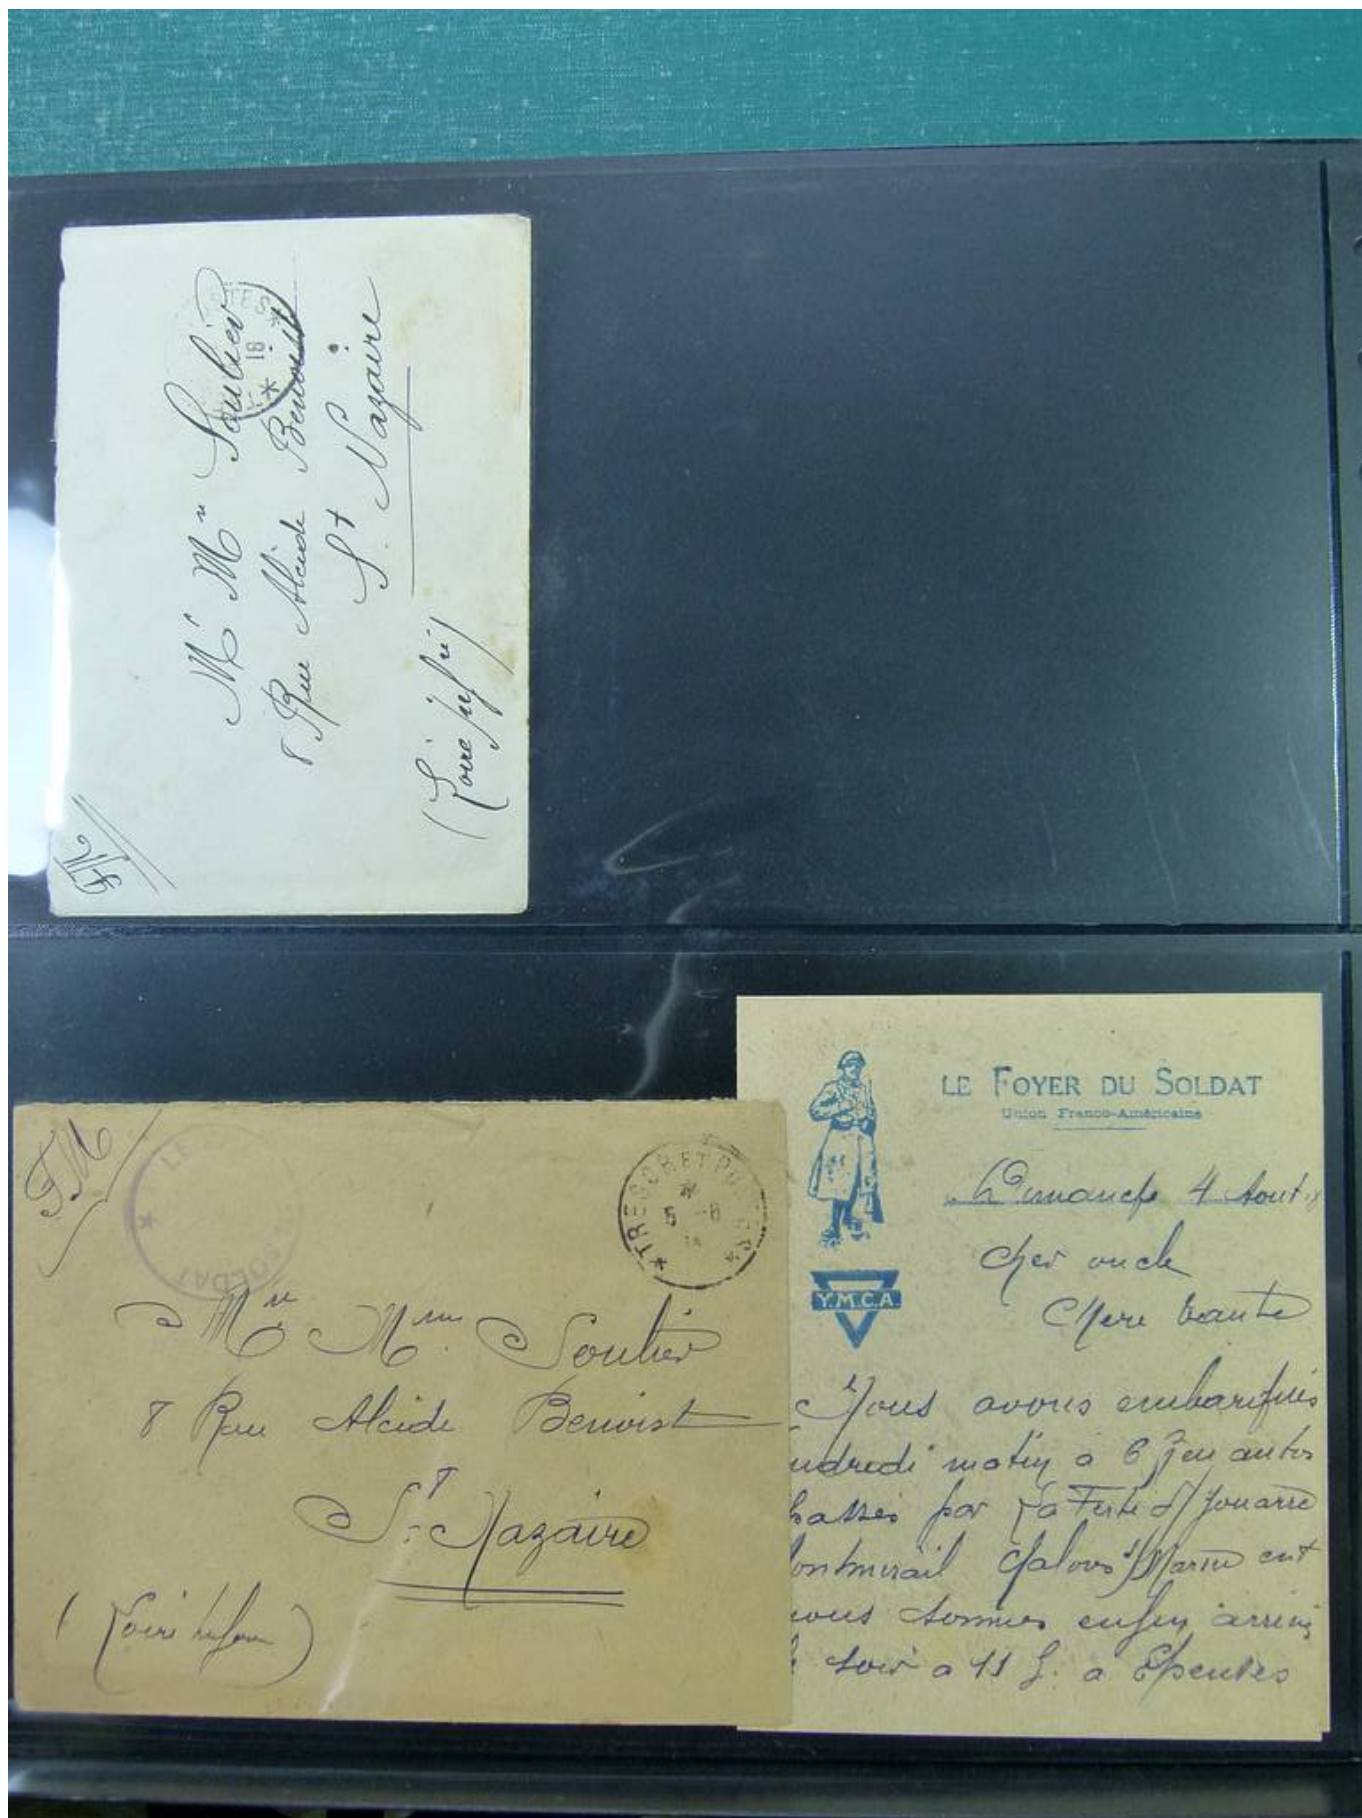 FM
Mr Mme Soulier
8 Rue Alcide Benoist
St Nazaire
(Loire infre)
TES
18
FM
LE
SOLDAT
TRESOR ET POSTES
5 -8
Mr Mme Soulier
8 Rue Alcide Benoist
St Nazaire
(Loire infre)
LE FOYER DU SOLDAT
Union Franco-Américaine
Y.M.C.A
Dimanche 4 Aout 18
Cher oncle
Chere tante
Nous avons embarqués
ndredi matin a 6 h en autos
passés par La Ferté s/ Jouarre
ontmirail Chalons s/ Marne ent
nous sommes enfin arrivés
soir a 11 h. a Epenses